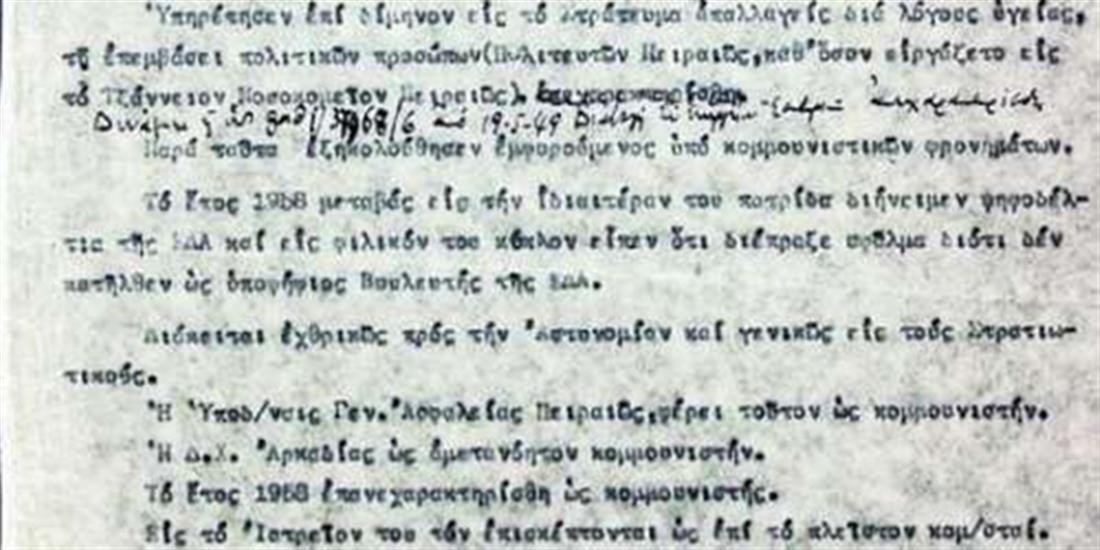 Ὑπηρέτησεν ἐπί δίμηνον εἰς τό Στράτευμα ἀπαλλαγείς διά λόγους ὑγείας,
τῇ ἐπεμβάσει πολιτικῶν προσώπων(Πολιτευτῶν Πειραιῶς,καθ'ὅσον εἰργάζετο εἰς
τό Τζάννειον Νοσοκομεῖον Πειραιῶς).
Δυνάμει 6 19-5-49
Παρά ταῦτα ἐξηκολούθησεν ἐμφορούμενος ὑπό κομμουνιστικῶν φρονημάτων.
Τό ἔτος 1958 μεταβάς εἰς τήν ἰδιαιτέραν του πατρίδα διήνειμεν ψηφοδέλ-
τια τῆς ΕΔΑ καί εἰς φιλικόν του κύκλον εἶπεν ὅτι διέπραξε σφᾶλμα διότι δέν
κατῆλθεν ὡς ὑποψήφιος Βουλευτής τῆς ΕΔΑ.
Διάκειται ἐχθρικῶς πρός τήν Ἀστυνομίαν καί γενικῶς εἰς τούς Στρατιω-
τικούς.
Ἡ Ὑποδ/νσις Γεν.Ἀσφαλείας Πειραιῶς,φέρει τοῦτον ὡς κομμουνιστήν.
Ἡ Δ.Χ. Ἀρκαδίας ὡς ἀμετανόητον κομμουνιστήν.
Τό ἔτος 1958 ἐπανεχαρακτηρίσθη ὡς κομμουνιστής.
Εἰς τό Ἰατρεῖον του τόν ἐπισκέπτονται ὡς ἐπί τό πλεῖστον κομ/σταί.